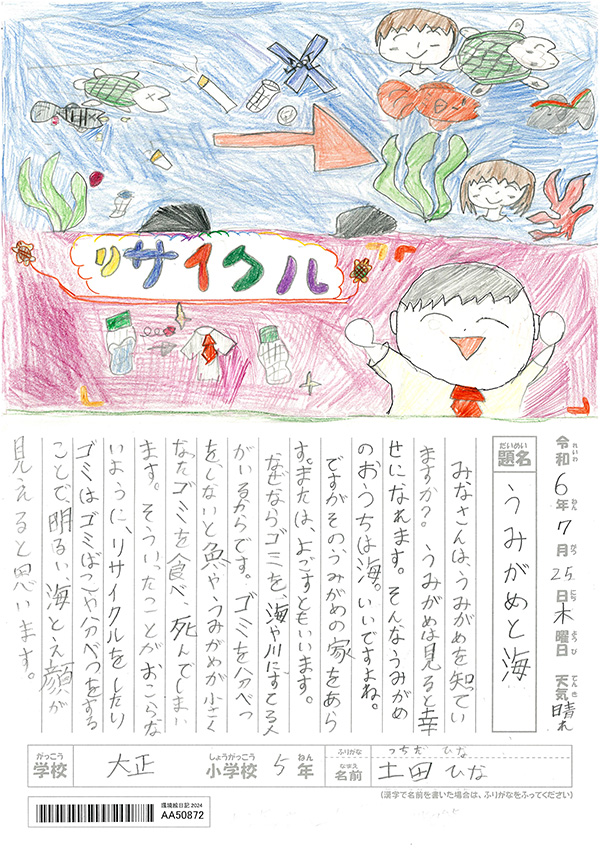 リサイクル
令和6年7月25日木曜日 天気晴れ
れいわ ねん がつ にち ようび てんき
だいめい
題名
うみがめと海
みなさんは、うみがめを知ってい
ますか?うみがめは見ると幸
せになれます。そんなうみがめ
のおうちは海。いいですよね。
ですがそのうみがめの家をあら
す。または、よごすともいいます。
なぜならゴミを、海や川にすてる人
がいるからです。ゴミを分べつ
を、しないと魚やうみがめが小さく
なったゴミを食べ、死んでしまい
ます。そういったことがおこらな
いように、リサイクルをしたり
ゴミはゴミばこや分べつをする
ことで、明るい、海とえ顔が
見えると思います。
がっこう しょうがっこう ねん ふりがな つちだ ひな
学校 大正 小学校 5年 なまえ 名前 土田 ひな
(漢字で名前を書いた場合は、ふりがなをふってください)
環境絵日記 2024
AA50872